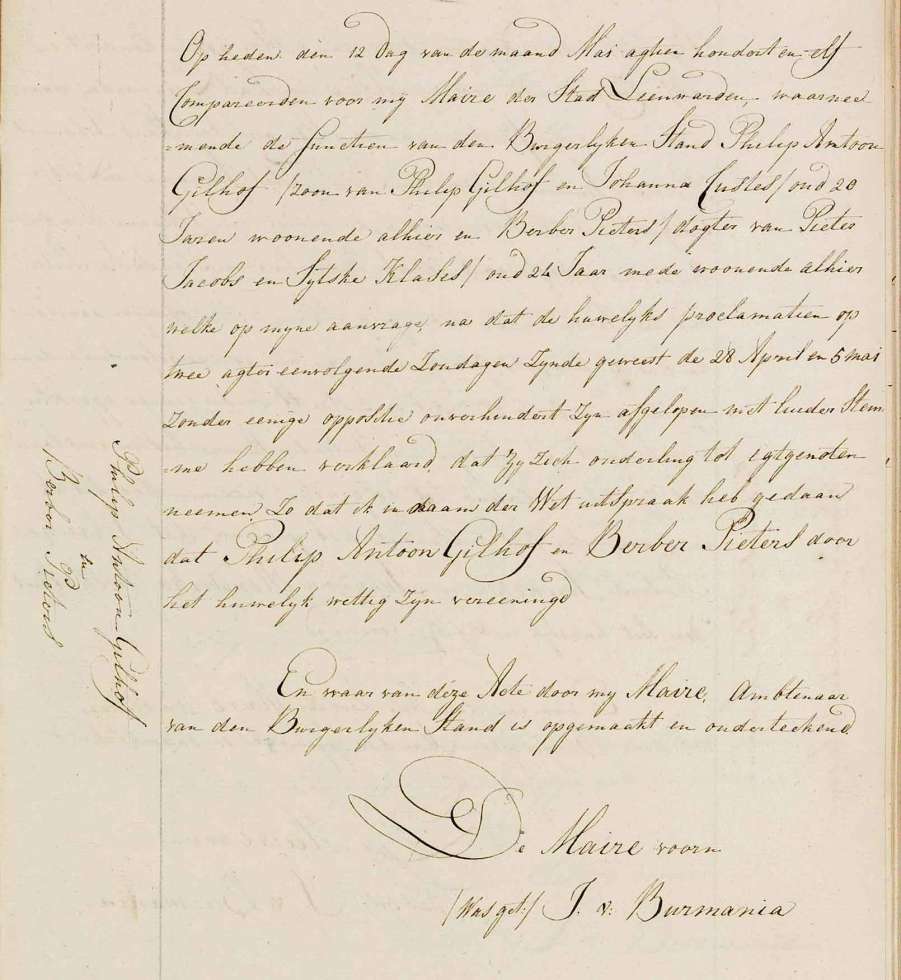 Op heden den 12 Dag van de maand Mai agtien hondert en elf
Compareerden voor my Maire der Stad Leeuwarden, waarnee
=mende de functien van den Burgerlyken Stand Philip Antoon
Gilhof /zoon van Philip Gilhof en Johanna Custes/ oud 20
Jaren woonende alhier en Berber Pieters /dogter van Pieter
Jacobs en Sytske Klases/ oud 24 Jaar mede woonende alhier
welke op myne aanvrage, na dat de huwelyks proclamatien op
twee agter eenvolgende Zondagen Zynde geweest de 28 April en 5 mai
Zonder eenige oppositie onverhindert Zyn afgelopen met luider Stem
=me hebben verklaard, dat Zy Zich onderling tot egtgenoten
neemen, Zo dat ik in naam der Wet uitspraak heb gedaan
dat Philip Antoon Gilhof en Berber Pieters door
het huwelyk wettig Zyn vereenigd
En waar van deze Acte door my Maire, Ambtenaar
van den Burgerlyken Stand is opgemaakt en onderteekend
De Maire voorn
/Was get:/ J. v: Burmania
Philip Antoon Gilhof
en
Berber Pieters